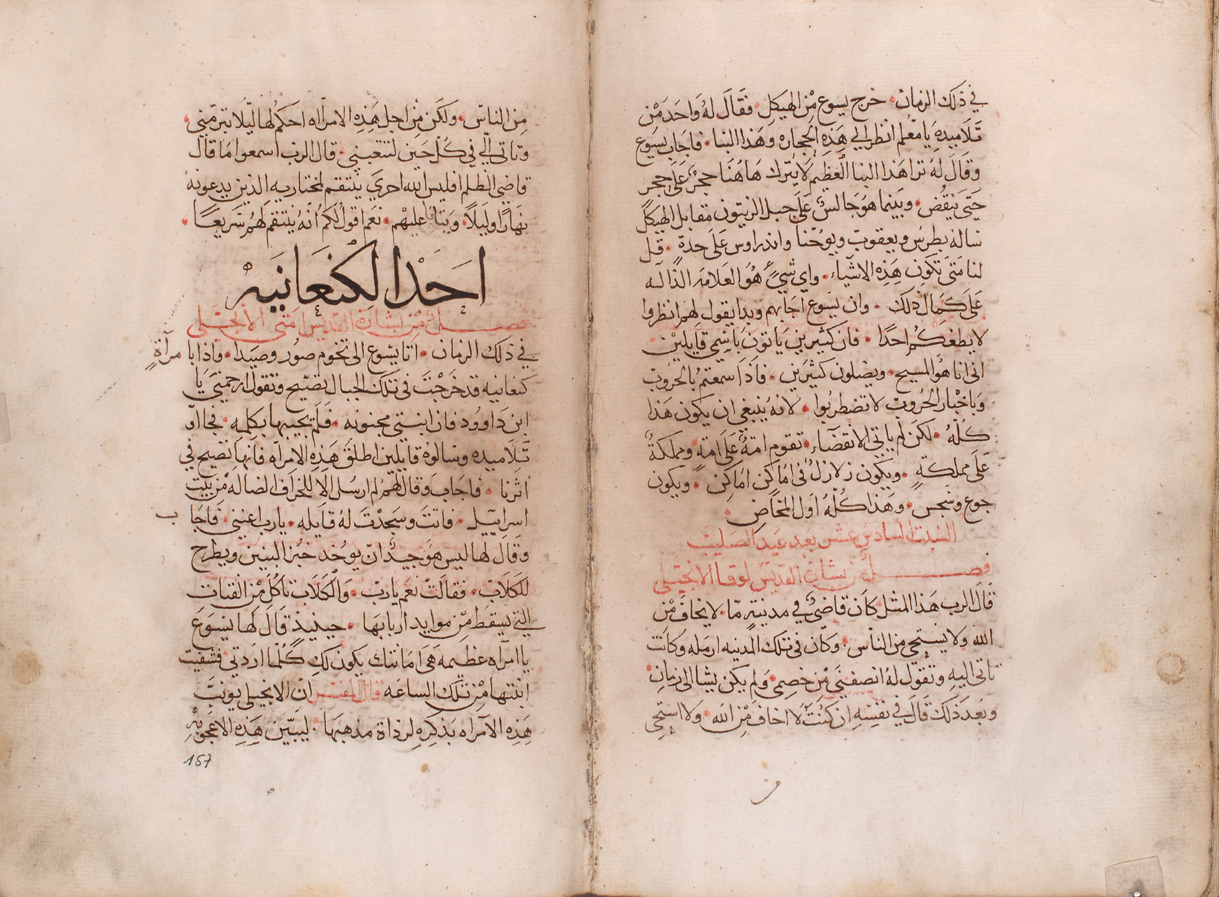 في ذلك الزمان خرج يسوع من الهيكل فقال له واحد من
تلاميده يا معلم انظر الي هذه الحجاره وهذا البنا فاجاب يسوع
وقال له ترا هذا البنا العظيم لا يترك هاهنا حجر على حجر
حتى ينقض وبينما هو جالس على جبل الزيتون مقابل الهيكل
ساله بطرس ويعقوب ويوحنا واندراوس على حدة قل
لنا متى تكون هذه الاشياء واي شي هو العلامه الداله
على كمال ذلك وان يسوع اجابهم وبدا يقول لهم انظروا
لا يطغكم احدا فان كثيرين ياتون باسمي قايلين
اني انا هو المسيح ويضلون كثيرين فاذا سمعتم بالحروب
وباخبار الحروب لا تضطربوا لانه ينبغي ان يكون هذا
كله لكن لم ياتي الانقضاء تقوم امة على امة ومملكة
على مملكة ويكون زلازل في اماكن اماكن ويكون
جوع وسجس وهذا كله اول المخاض
السبت السادس عشر بعد عيد الصليب
فصل من بشارة القديس لوقا الانجيلي
قال الرب هذا المثل كان قاضي في مدينة ما لا يخاف من
الله ولا يستحي من الناس وكان في تلك المدينه ارمله وكانت
تاتي اليه وتقول له انصفني من خصمي ولم يكن يشا الى زمان
وبعد ذلك قال في نفسه ان كنت لا اخاف من الله ولا استحي
من الناس ولكن من اجل هذه الامراه احكم لها ليلا تبرمني
وتاتي الي في كل حين لتتعبني قال الرب اسمعوا ما قال
قاضي الظلم افليس الله احرى ينتقم لمختاريه الذين يدعونه
نهارا وليلا ويتانا عليهم نعم اقول لكم انه ينتقم لهم سريعا
احد الكنعانيه
فصل من بشارة القديس متى الانجيلي
في ذلك الزمان اتا يسوع الى تخوم صور وصيدا فاذا بامرآة
كنعانيه قد خرجت في تلك الجبال تصيح وتقول ارحمني يا
ابن داوود فان ابنتي مجنونه فلم يجيبها بكلمه فجااو
تلاميده وسالوه قايلين اطلق هذه الامراه فانها تصيح في
اثرنا فاجاب وقال لهم لم ارسل الا للخراف الضاله من بيت
اسراييل فاتت وسجدت له قايله يارب اعنني فاجاب
وقال لها ليس هو جيدا ان يوخد خبز البنين ويطرح
للكلاب فقالت نعم يا رب والكلاب تاكل من الفتات
التي يسقط من موايد اربابها حينيذ قال لها يسوع
يا امرآه عظيمه هي امانتك يكون لك كلما اردتي فشفيت
ابنتها من تلك الساعه قال المفسر ان الانجيلي يونب
هذه الآمراه بذكره لرذاة مذهبها ليبين هذه الاعجوبه
157